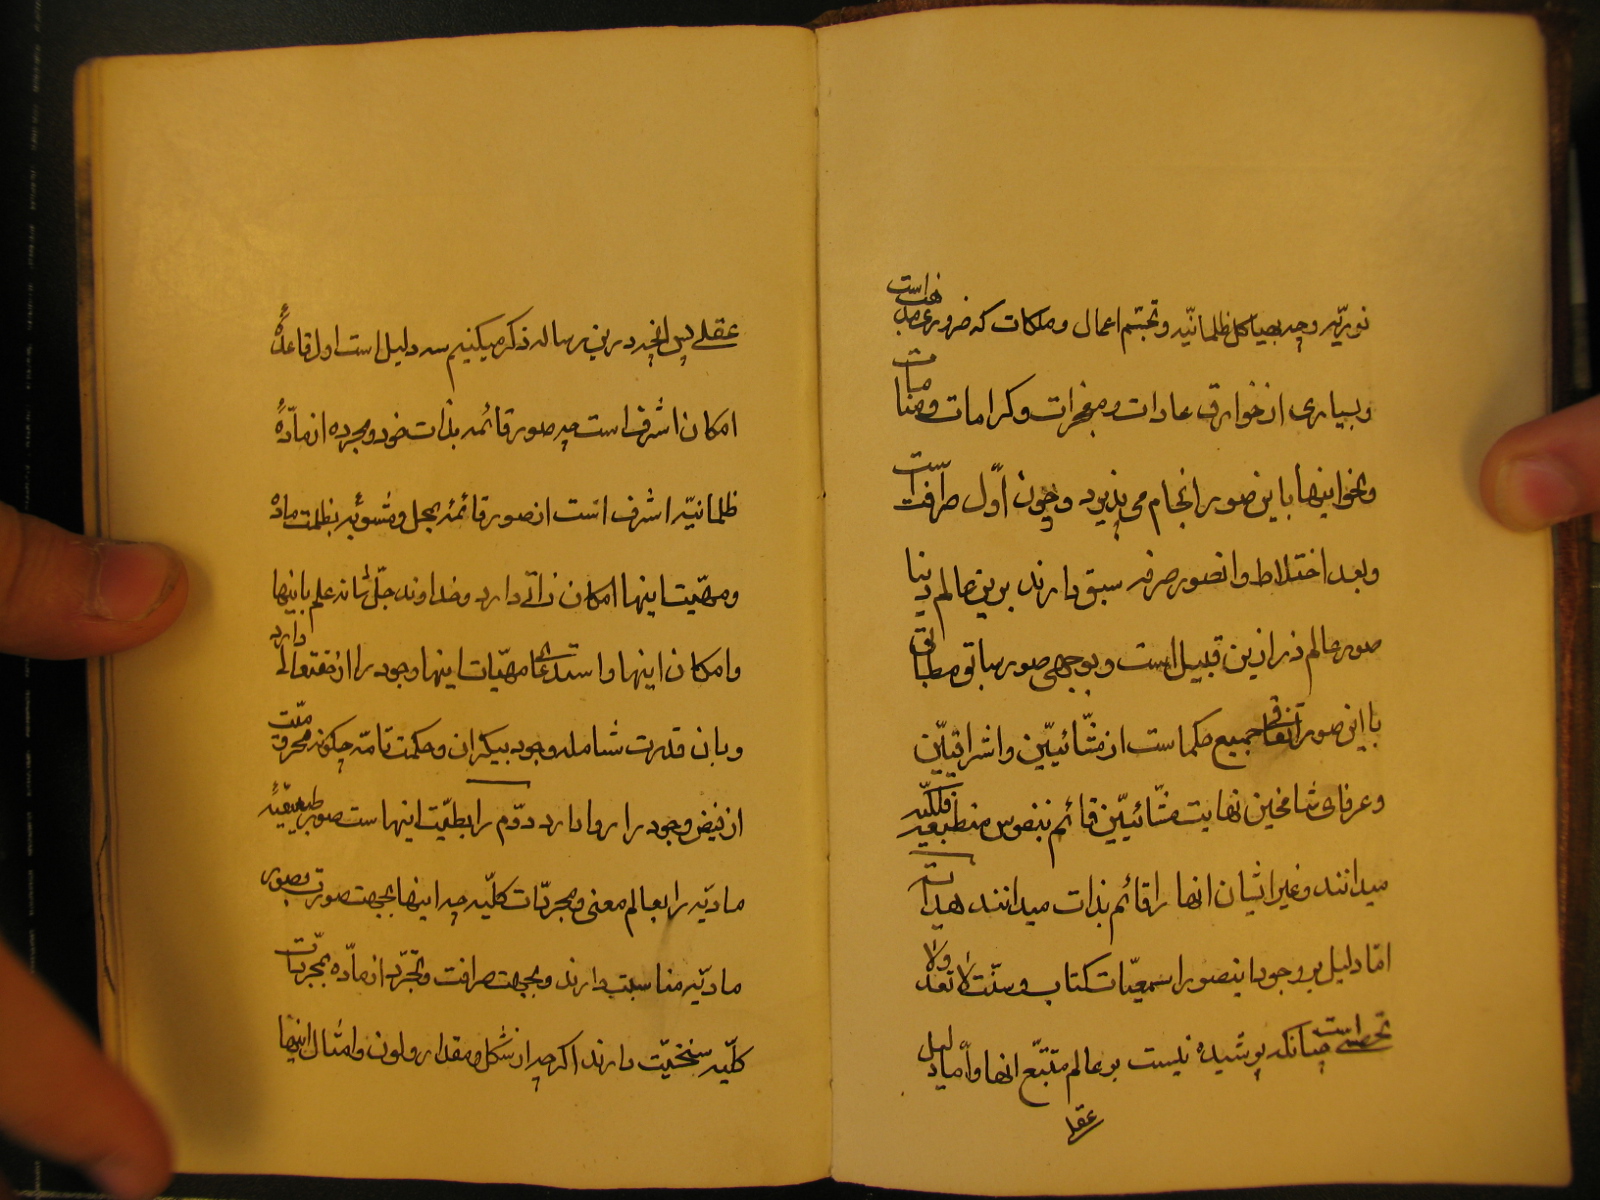 نوریّه و چه بهیاکل ظلمانیّه و تجسّم اعمال و ملکات که ضرور مذهب است
و بسیاری از خوارق عادات و معجزات و کرامات و منامات
و نحو اینها باین صور انجام می پذیرد و چون اوّل صرافت است
و بعد اختلاط و انصور صرفه سبق دارند برین عالم دنیا
صور عالم ذر ازین قبیل است و بوجهی صور سابق و مطابق
با این صور اتفاقی جمیع حکما است از مشّائیّین و اشراقیّین
و عرفای شامخین نهایت مشّائیّین قائم بنفوس منطبعه فلکیّه
میدانند و غیر ایشان انها را قائم بذات میدانند هدایت
امّا دلیل بر وجود اینصور از سمعیّات کتاب و سنّت لا تعدّ و لا
تحصی است چنانکه پوشیده نیست بر عالم متتبّع انها و امّا دلیل
عقلی
عقلی پس انچه درین رساله ذکر میکنیم سه دلیل است اول قاعدهٔ
امکان اشرف است چه صور قائمه بذات خود و مجرده از مادّهٔ
ظلمانیّه اشرف است از صور قائمهٔ بمحل و مشوبه بظلمت ماده
و مهیّت اینها امکان ذاتی دارد و خداوند جلّ شانه علم باینها دارد
و امکان اینها و استدعای مهیّات اینها وجود را
و بان قدرت شامله وجود بیکران و حکمت تامّه چگونه محرومیّت
از فیض وجود را روا دارد دوّم رابطیّت اینها است صور طبیعیّهٔ
مادیّه را بعالم معنی و مجردات کلّیّه چه اینها بجهت صورت و صور
مادیّه مناسبت دارند و بجهت صرافت و تجرّد از مادّه بمجردات
کلّیّه سنخیّت دارند اگر چه از شکل و مقدار و لون و امثال اینها